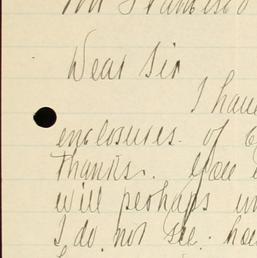 Dear Sir
I have
enclosures of
thanks. You
will perhaps
I do not see